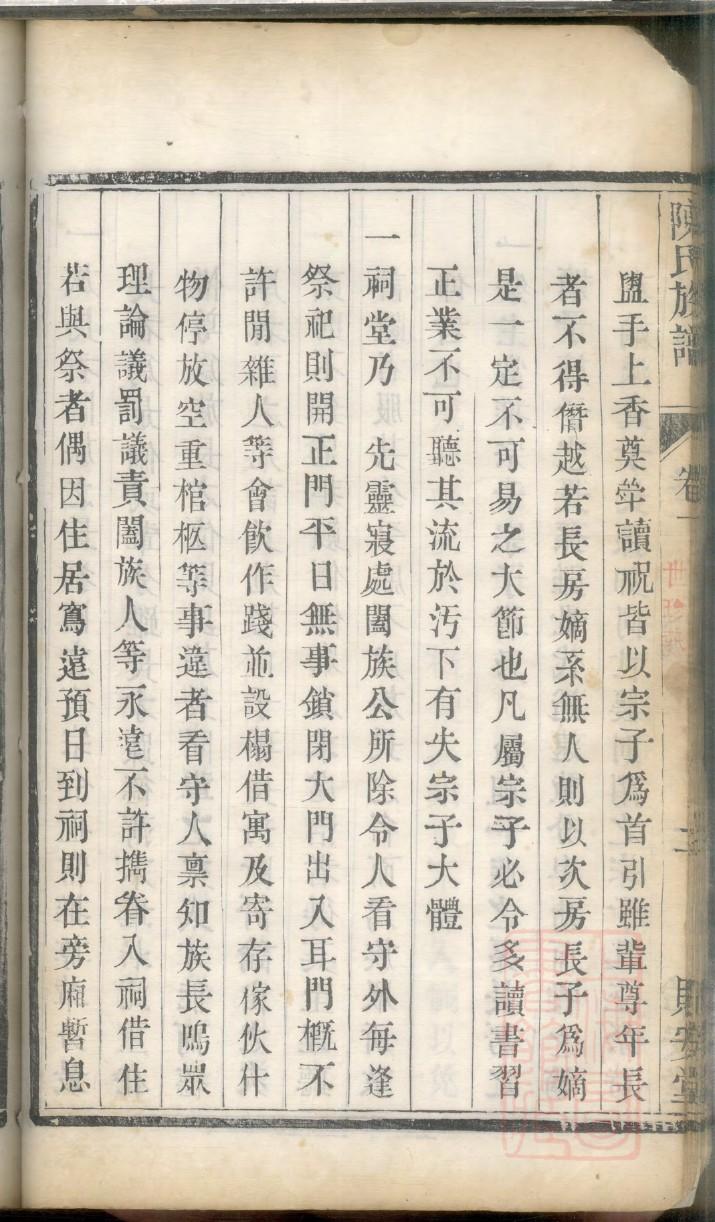 陳氏族譜 卷一 二 則安堂
盥手上香奠斚讀祝皆以宗子爲首引雖輩尊年長
者不得僭越若長房嫡系無人則以次房長子爲嫡
是一定不可易之大節也凡屬宗子必令多讀書習
正業不可聽其流於汚下有失宗子大體
一祠堂乃 先靈寢處闔族公所除令人看守外每逢
祭祀則開正門平日無事鎖閉大門出入耳門概不
許閒雜人等會飮作踐並設榻借寓及寄存傢伙什
物停放空重棺柩等事違者看守人禀知族長鳴眾
理論議罰議責闔族人等永遠不許擕眷入祠借住
若與祭者偶因住居寫遠預日到祠則在旁廂暫息